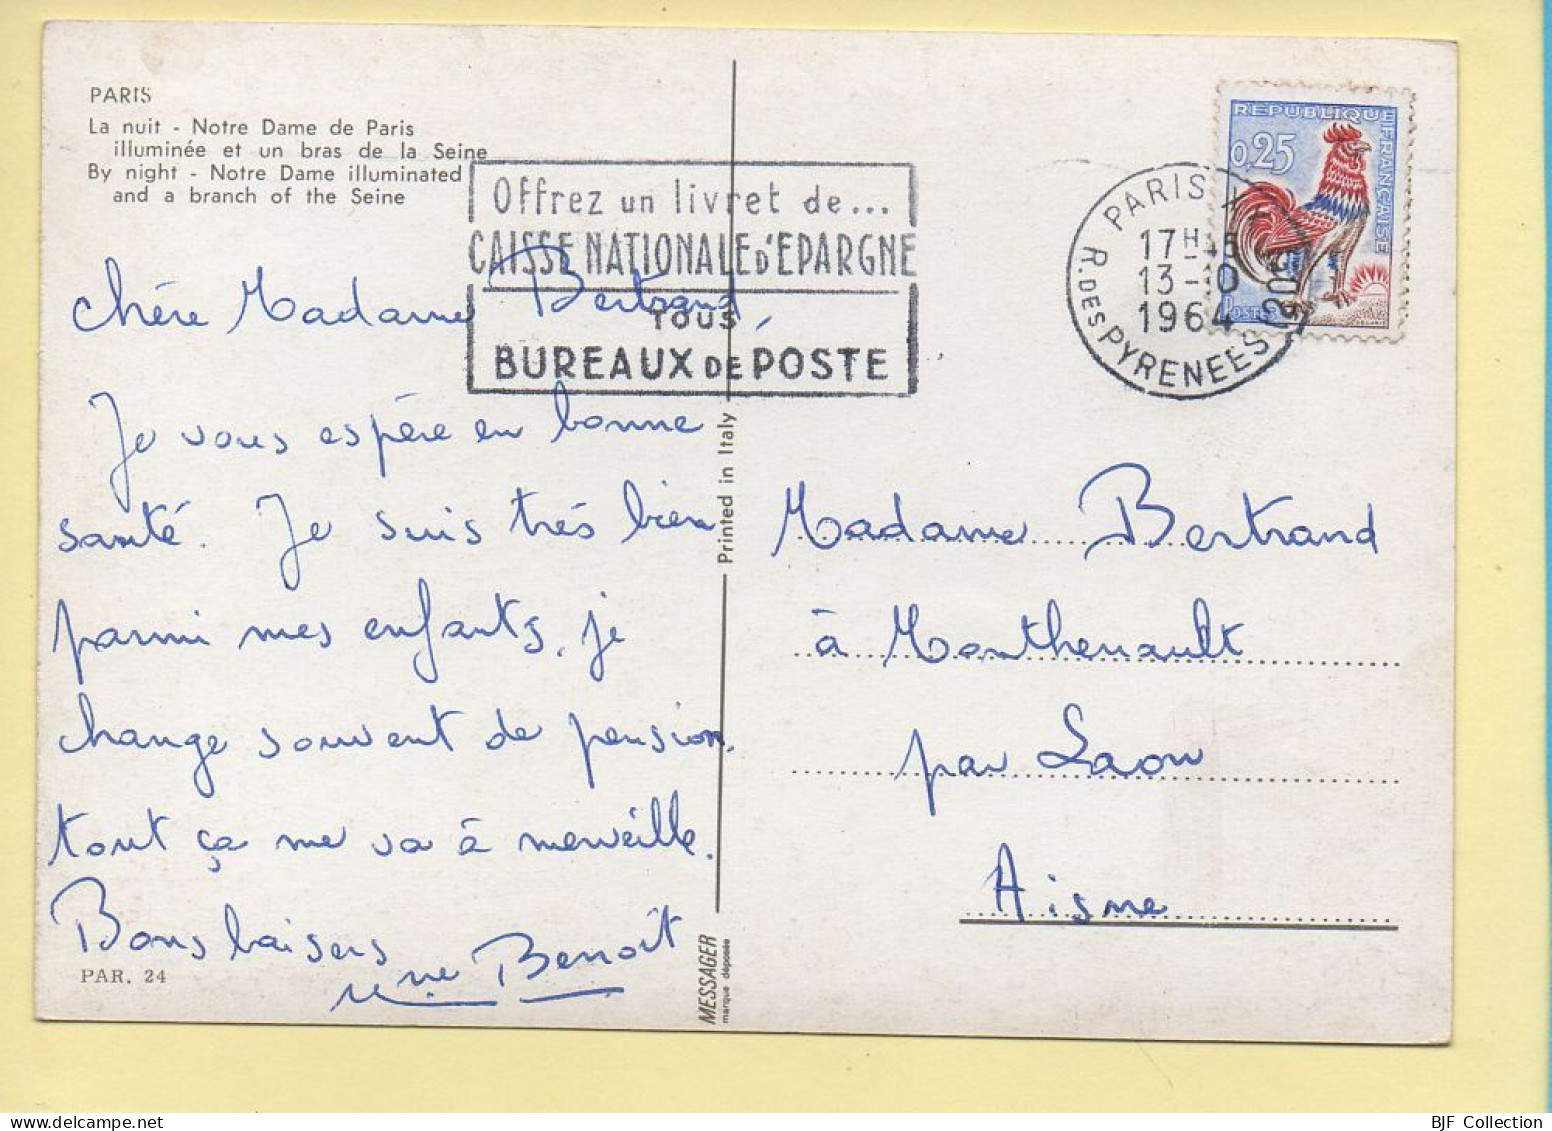 PARIS
La nuit - Notre Dame de Paris
illuminée et un bras de la Seine
By night - Notre Dame illuminated
and a branch of the Seine
Offrez un livret de...
CAISSE NATIONALE D'EPARGNE
TOUS
BUREAUX DE POSTE
REPUBLIQUE FRANÇAISE
0,25
POSTES
PARIS XX
17H45
13-10
1964
R. DES PYRENEES
Chère Madame Bertrand,
Je vous espère en bonne
santé. Je suis très bien
parmi mes enfants, je
change souvent de pension,
tout ça me va à merveille.
Bons baisers
me Benoît
PAR. 24
Printed in Italy
MESSAGER
marque déposée
Madame Bertrand
à Monthenault
par Laon
Aisne
BJF Collection